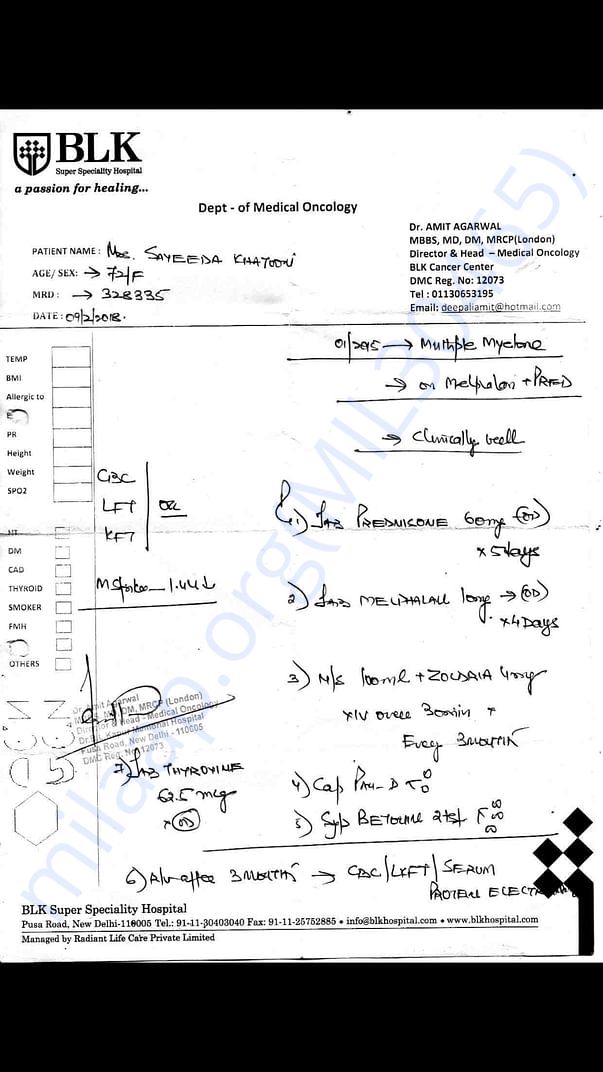 BLK
Super Speciality Hospital
a passion for healing...
Dept - of Medical Oncology
Dr. AMIT AGARWAL
MBBS, MD, DM, MRCP(London)
Director & Head - Medical Oncology
BLK Cancer Center
DMC Reg. No: 12073
Tel : 01130653195
Email: deepaliamit@hotmail.com
PATIENT NAME : Mrs. SAYEEDA KHATOON
AGE/ SEX: → 72/F
MRD : → 328335
DATE : 09/2/2018.
TEMP
BMI
Allergic to
PR
Height
Weight
SPO2
HT
DM
CAD
THYROID
SMOKER
FMH
OTHERS
01/2015 → Multiple Myeloma
→ on Melphalan + PRED
→ Clinically well
CBC
LFT
KFT
M Spike - 1.44 ↓
1) TAB PREDNISONE 60mg (OD)
x 5 days
2) TAB MELPHALAN 10mg → (OD)
x 4 Days
3) N/S 100ml + ZOLDRIA 4mg
x IV over 30min
Every 3 MONTH
4) Cap PAN-D
5) Syp 2tsf
6) R/v after 3 MONTHS → CBC/LKFT/SERUM
PROTEIN
7) TAB THYROXINE
62.5 mcg
x (OD)
Dr. Amit Agarwal
DM, MRCP (London)
Director & Head - Medical Oncology
Dr. B.L. Kapur Memorial Hospital
Pusa Road, New Delhi - 110005
DMC Reg. No. 12073
BLK Super Speciality Hospital
Pusa Road, New Delhi-110005 Tel.: 91-11-30403040 Fax: 91-11-25752885 • info@blkhospital.com • www.blkhospital.com
Managed by Radiant Life Care Private Limited